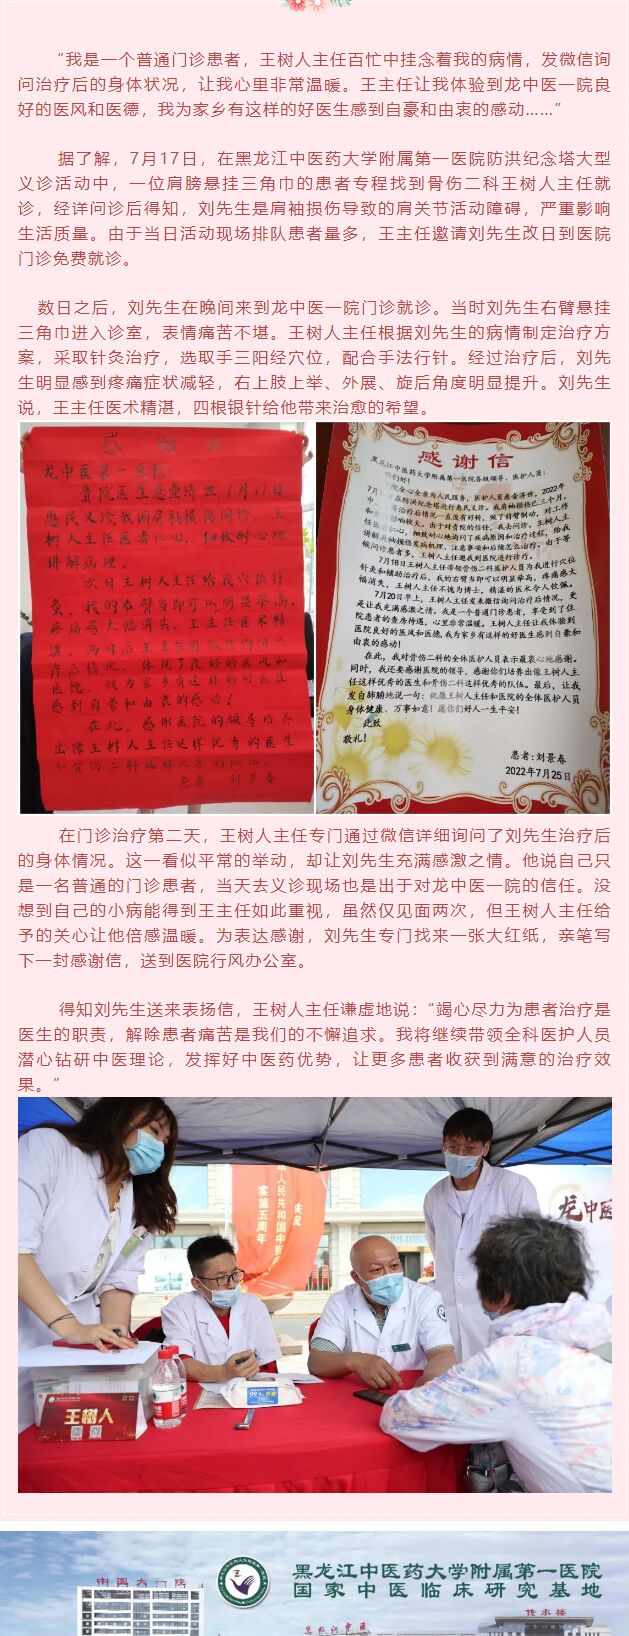 “我是一个普通门诊患者，王树人主任百忙中挂念着我的病情，发微信询
问治疗后的身体状况，让我心里非常温暖。王主任让我体验到龙中医一院良
好的医风和医德，我为家乡有这样的好医生感到自豪和由衷的感动……”
据了解，7月17日，在黑龙江中医药大学附属第一医院防洪纪念塔大型
义诊活动中，一位肩膀悬挂三角巾的患者专程找到骨伤二科王树人主任就
诊，经详问诊后得知，刘先生是肩袖损伤导致的肩关节活动障碍，严重影响
生活质量。由于当日活动现场排队患者量多，王主任邀请刘先生改日到医院
门诊免费就诊。
数日之后，刘先生在晚间来到龙中医一院门诊就诊。当时刘先生右臂悬挂
三角巾进入诊室，表情痛苦不堪。王树人主任根据刘先生的病情制定治疗方
案，采取针灸治疗，选取手三阳经穴位，配合手法行针。经过治疗后，刘先
生明显感到疼痛症状减轻，右上肢上举、外展、旋后角度明显提升。刘先生
说，王主任医术精湛，四根银针给他带来治愈的希望。
感谢信
龙中医第一医院
贵院医生悬壶济世，7月17日
惠民义诊我因肩袖损伤问诊，王
树人主任医者仁心，细致耐心地
讲解病理。
次日王树人主任给我穴位针
灸，我的右臂当即可以明显举高，
疼痛感大幅消失，王主任医术精
感到自豪和由衷的感动！
在此，感谢医院的领导培养
出像王树人主任这样优秀的医生
和骨伤二科这样优秀的队伍。
患者：刘景春
感谢信
黑龙江中医药大学附属第一医院各级领导、医护人员：
你们好！
讲解肩袖损伤发病机理、注意事项和后续怎么治疗，由于等
候问诊患者多，王树人主任邀我到医院进行诊疗。
7月18日王树人主任带领骨伤二科医护人员为我进行穴位
针灸和辅助治疗后，我的右臂当即可以明显举高，疼痛感大
幅消失，王树人主任不愧为博士，精湛的医术令人钦佩。
7月20日早上，王树人主任发来微信询问治疗后情况，更
是让我充满感激之情。我是一个普通门诊患者，享受到了住
院患者的查房待遇，心里非常温暖。王树人主任让我体验到
医院良好的医风和医德，我为家乡有这样的好医生感到自豪和
由衷的感动！
在此，我对骨伤二科的全体医护人员表示最衷心地感谢。
同时，我还要感谢医院的领导，感谢你们培养出像王树人主
任这样优秀的医生和骨伤二科这样优秀的队伍。最后，让我
发自肺腑地说一句：祝愿王树人主任和医院的全体医护人员
身体健康、万事如意！愿你们好人一生平安！
此致
敬礼！
患者：刘景春
2022年7月25日
在门诊治疗第二天，王树人主任专门通过微信详细询问了刘先生治疗后
的身体情况。这一看似平常的举动，却让刘先生充满感激之情。他说自己只
是一名普通的门诊患者，当天去义诊现场也是出于对龙中医一院的信任。没
想到自己的小病能得到王主任如此重视，虽然仅见面两次，但王树人主任给
予的关心让他倍感温暖。为表达感谢，刘先生专门找来一张大红纸，亲笔写
下一封感谢信，送到医院行风办公室。
得知刘先生送来表扬信，王树人主任谦虚地说：“竭心尽力为患者治疗是
医生的职责，解除患者痛苦是我们的不懈追求。我将继续带领全科医护人员
潜心钻研中医理论，发挥好中医药优势，让更多患者收获到满意的治疗效
果。”
人民共和国中医
实施五周年
龙中医
王树人
黑龙江中医药大学附属第一医院
国家中医临床研究基地
传承楼
黑龙江中医